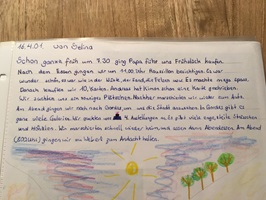 16.4.01 von Selina
Schon ganz früh um 7.30 ging Papa führ uns Frühstück kaufen.
Nach dem Essen gingen wir um 11.00 Uhr Häuschen besichtigen. Es war
wunder schön, es war wie in der Höhle, der Sand, die Felsen wow Es machte mega spass.
Danach kauften wir 10. Karten. Andreas hat Kimos schon eine Karte geschrieben.
Wir suchten uns ein schattiges Plätzchen. Nachher marschierten wir wieder zum Auto.
Am Abend gingen wir nach um und die Stadt ansehen. In Gordes gibt es
ganz viele Galerien. Wir guckten uns 4 Austellungen an. Es gibt viele enge, steile Strässchen
und Hüslein. Wir marschierten schnell wieder heim, weil schon dann Abendessen. Am Abend
gingen wir an Andacht halten.